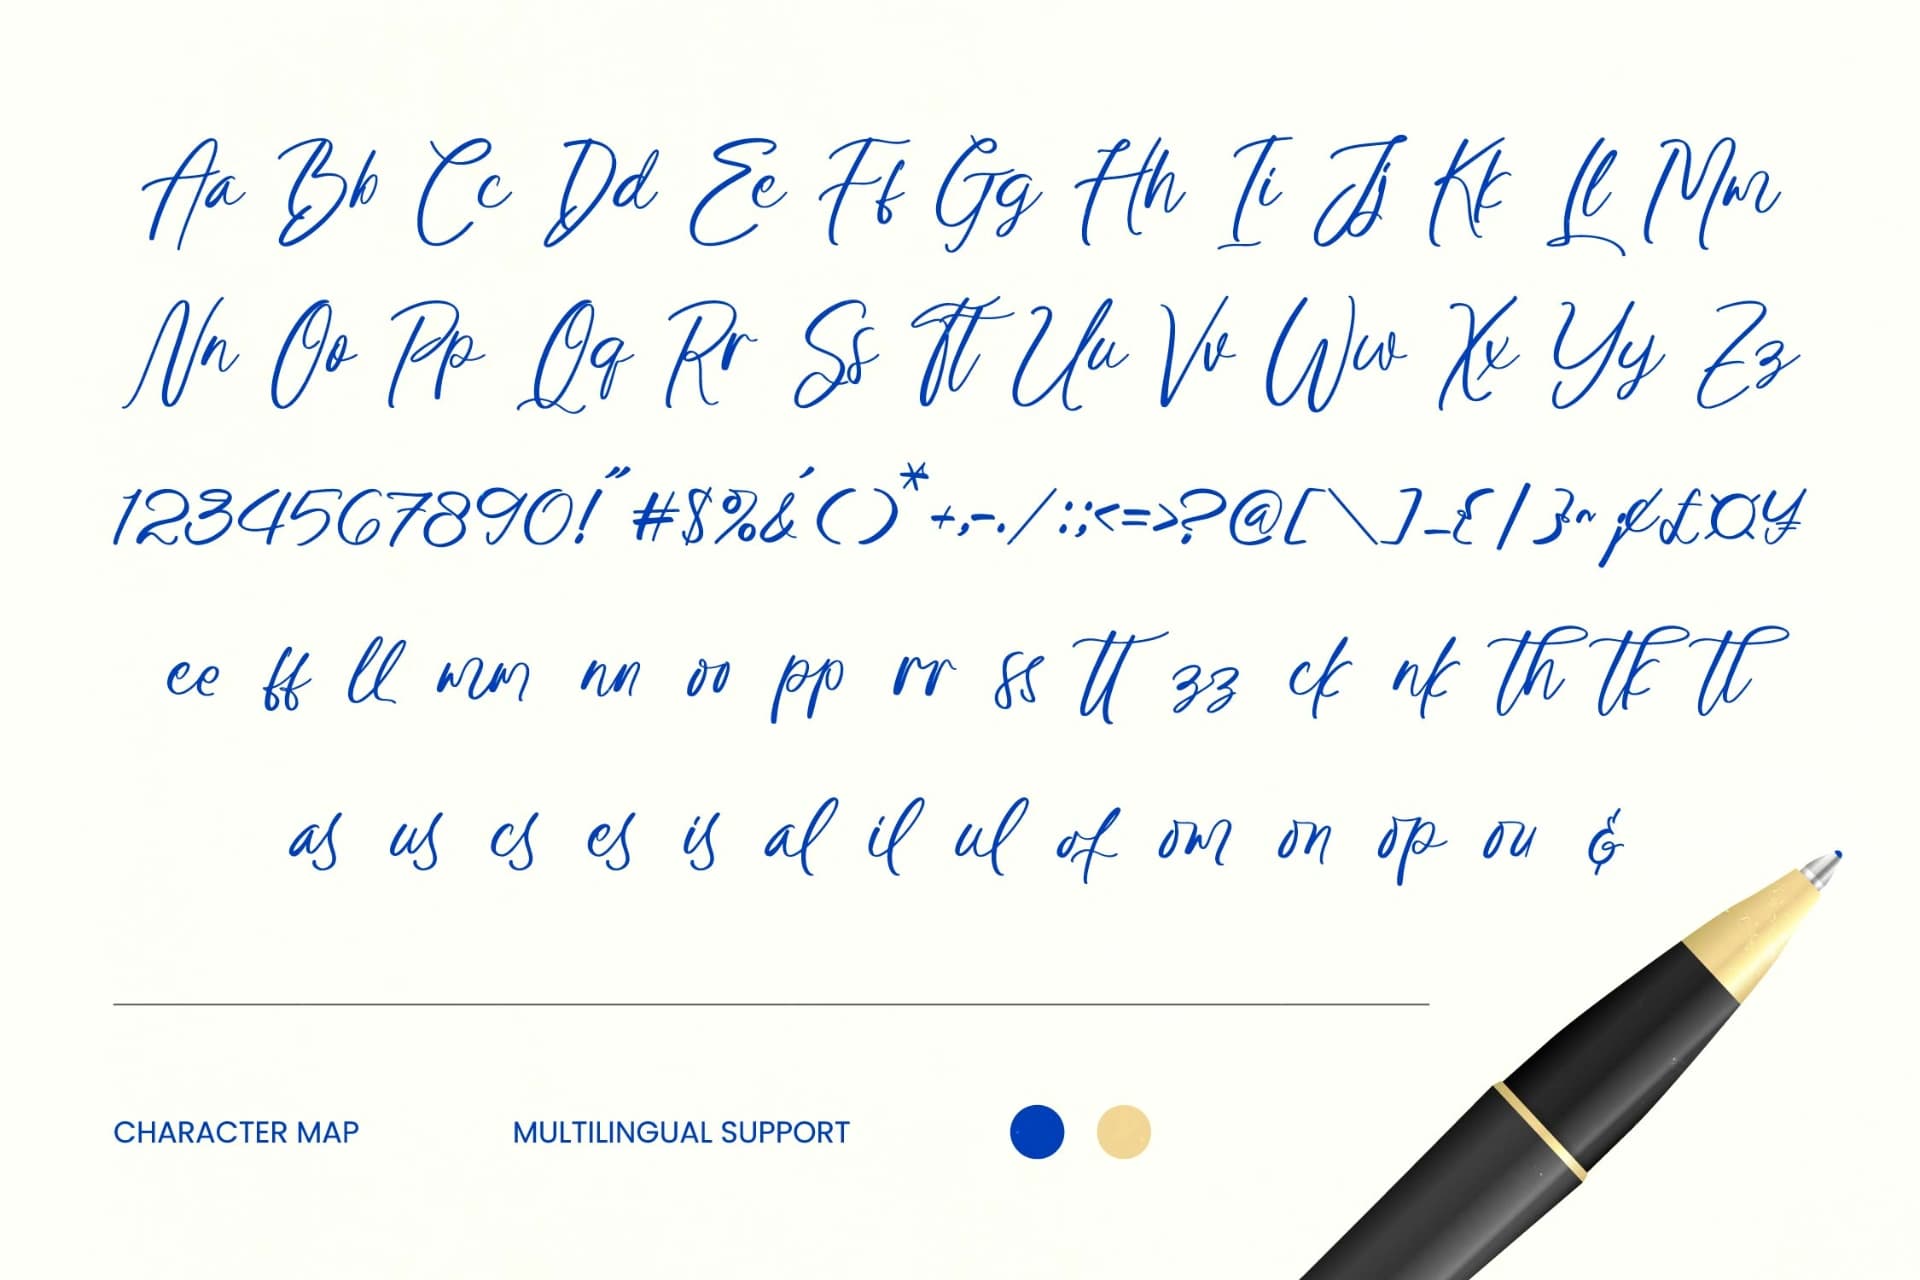 Aa Bb Cc Dd Ee Ff Gg Hh Ii Jj Kk Ll Mm
Nn Oo Pp Qq Rr Ss Tt Uu Vv Ww Xx Yy Zz
1234567890!"#$%&'()*+,-./:;<=>?@[\]_{|}~¡¢£¤¥
ee ff ll mm nn oo pp rr ss tt zz ck nk th tk tl
as us cs es is al il ul of om on op ou &
CHARACTER MAP MULTILINGUAL SUPPORT